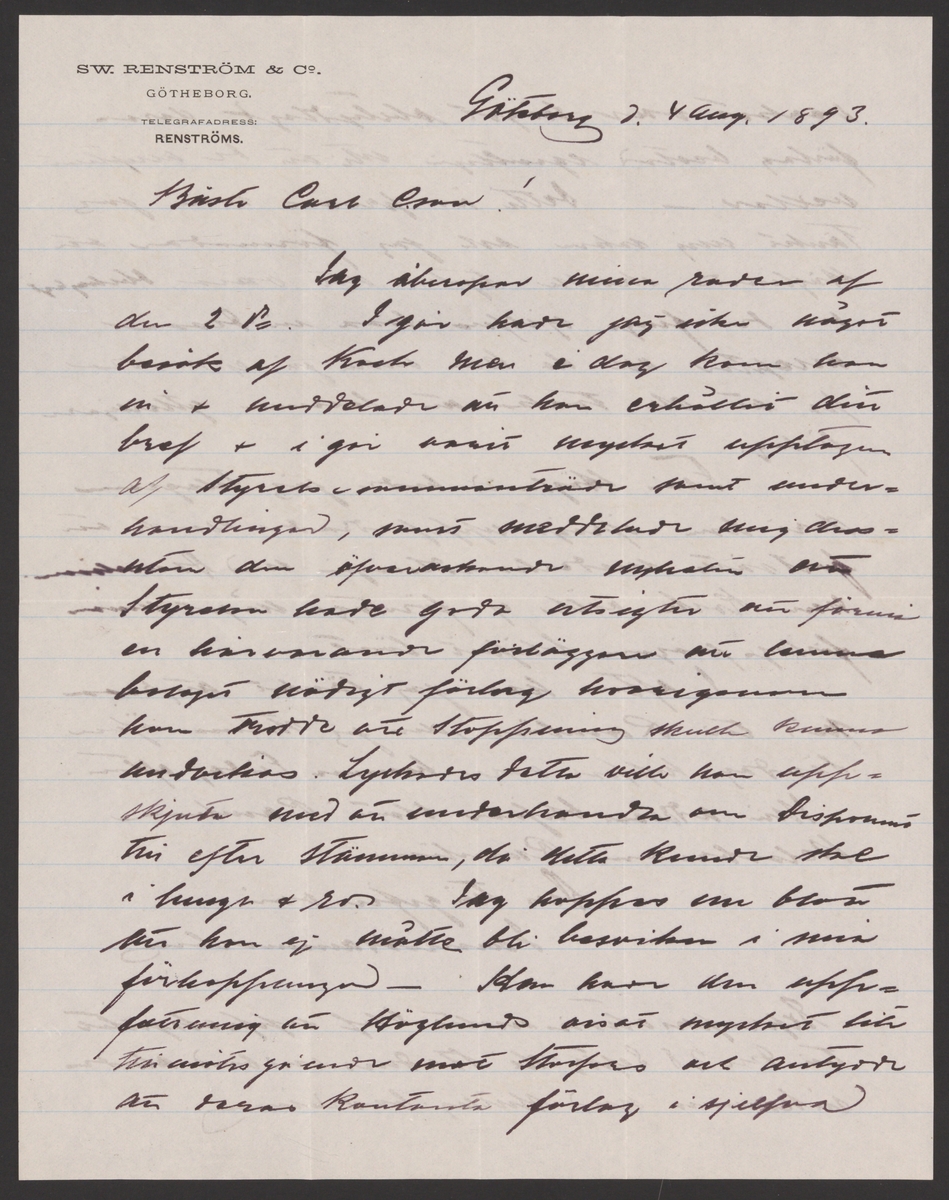 SW. RENSTRÖM & Cº.
GÖTHEBORG.
TELEGRAFADRESS:
RENSTRÖMS.
Göteborg d. 4 Aug. 1893.
Bäste Carl Cson!
Jag åberopar mina rader af
den 2 ds. I går hade jag icke något
besök af Koch men i dag kom han
in & meddelade att han erhållit ditt
bref & i går varit mycket upptagen
af Styrelsesammanträde samt under=
handlingar, samt meddelade mig dess=
utom den öfverraskande nyheten att
Styrelsen hade goda utsigter att förmå
en härvarande förläggare att lemna
bolaget nödigt förlag hvarigenom
han trodde att Stoppning skulle kunna
undvikas. Lyckades detta ville han upp=
skjuta med att underhandla om Disponent
till efter stämman, då detta kunde ske
i lugn & ro. Jag hoppas nu blott
att han ej måtte bli besviken i sina
förhoppningar — Han hade den upp=
fattning att Höglunds visat mycket litet
tillmötesgående mot Storfors och antydde
att deras kontanta förlag i sjelfva